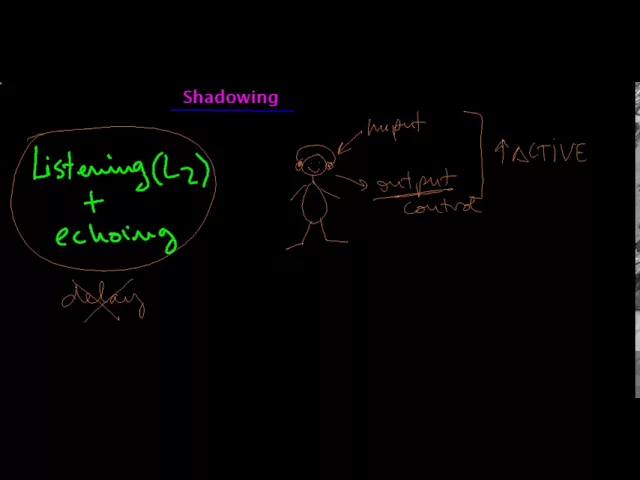 Shadowing
Listening (L2)
+
echoing
delay
input
output
control
↑ ACTIVE